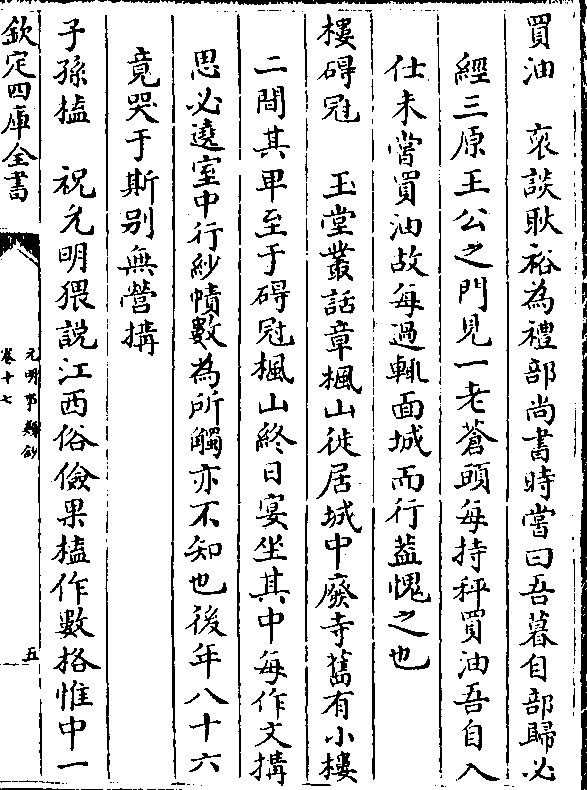 買油　裒談耿裕為禮部尚書時嘗曰吾暮自部歸必
經三原王公之門見一老蒼頭每持秤買油吾自入
仕未嘗買油故每過輒面城而行葢愧之也
樓碍冠　玉堂叢話章楓山徙居城中廢寺舊有小樓
二間其卑至于碍冠楓山終日宴坐其中每作文搆
思必遶室中行紗幘數為所觸亦不知也後年八十六
竟哭于斯别無營搆
子孫榼　祝允明猥說江西俗儉果榼作數格惟中一
欽定四庫全書
元明事類鈔
卷十七
五